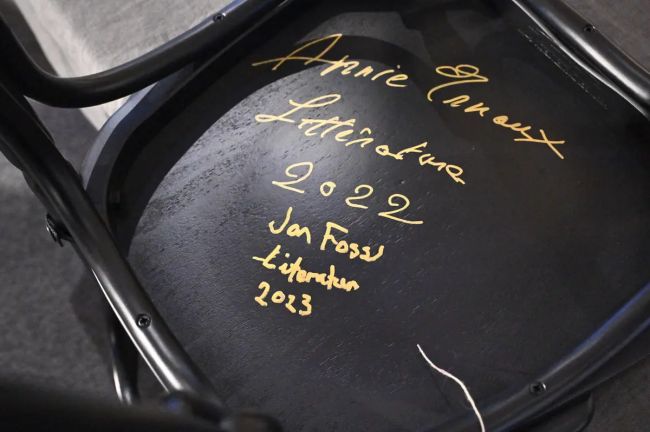 Annie Ernaux
Littérature
2022
Jon Fosse
Litteratur
2023